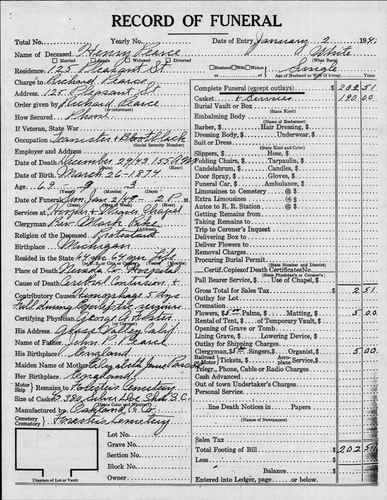 RECORD OF FUNERAL
Total No. Yearly No. Date of Entry January 2 194
Name of Deceased Henry Pearce White
Married Single Widowed Divorced (What Race)
Residence: 125 Pleasant St. Single
Husband Wife Widow Age of Husband or Wife (if living) Years
Charge to Richard Pearce
Address 125 Pleasant St
Order given by Richard Pearce
How Secured Phone
If Veteran, State War
Occupation Janitor & Bootblack (Social Security Number)
Employer and Address
Date of Death December 29 43 1:55 A.M.
Date of Birth March 26-1874
Age 69 9 3
Date of Funeral Sun Jan 2 2 P.M.
Services at Chapel
Clergyman Rev.
Religion of the Deceased Protestant
Birthplace Michigan
Resided in the State 64 yrs 64 yrs
Place of Death Nevada Co. Hospital
Cause of Death Cerebral Contusion &
Contributory Causes Hemorrhage 5 dys
Certifying Physician George
His Address Grass Valley, Calif.
Name of Father John P. Pearce
His Birthplace England
Maiden Name of Mother Elizabeth Jane
Her Birthplace England
Motor Ship Remains to Cemetery
Size of Casket Silver
Manufactured by Oakland Co
Cemetery Crematory Cemetery
Lot No.
Grave No.
Section No.
Block No.
Owner
Diagram of Lot or Vault
Complete Funeral (except outlays) $ 202 51
Casket & Services 190 00
Burial Vault or Box
(State Kind)
Embalming Body
Barber, $ Hair Dressing, $
Dressing Body, $ Underwear, $
Suit or Dress
(State Kind and Color)
Slippers, $ Hose, $
Folding Chairs, $ Tarpaulin, $
Candelabrum, $ Candles, $
Door Spray, $ Gloves, $
Funeral Car, $ Ambulance, $
Limousines to Cemetery @ $
Extra Limousines @ $
Autos to R. R. Station @ $
Getting Remains from
Taking Remains to
Trip to Coroner's Inquest
Delivering Box to
Deliver Flowers to
Removal Charges
Procuring Burial Permit
(State Number and District)
Certif. Copies of Death Certificates No.
(State Physician's or Coroner's)
Pall Bearer Service, $ Use of Chapel, $
Gross Total for Sales Tax $ 2 51
Outlay for Lot
Cremation
Flowers, $ Palms, $ Matting, $ 5 00
Rental of Tent, $ of Temporary Vault, $
Opening of Grave or Tomb
Lining Grave, $ Lowering Device, $
Outlay for Shipping Charges
Clergyman, $ Singers, $ Organist, $ 5 00
Railroad Motor Tickets, $ Plane Service, $
Telegr., Phone, Cable or Radio Charges
Cash Advanced
Out of town Undertaker's Charges
Personal Service
line Death Notices in Papers
(Names of Newspapers)
Sales Tax
Total Footing of Bill $ 202 51
Less
Balance
Entered into Ledger, page or below.